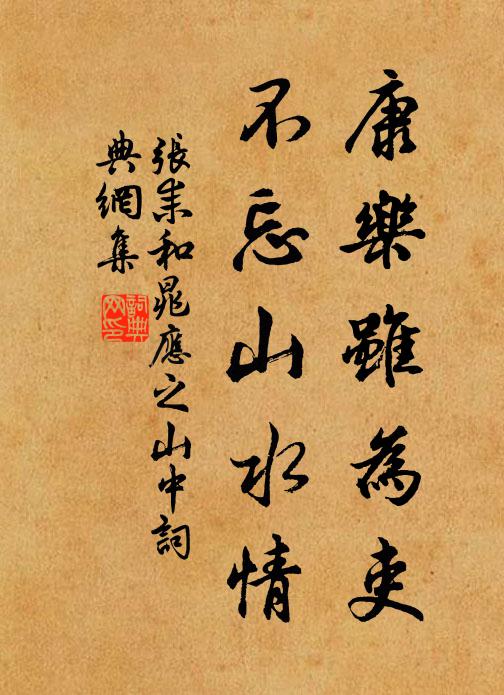 康樂雖為吏
不忘山水情
張耒和晁應之山中詞
典網集
詞典
网印